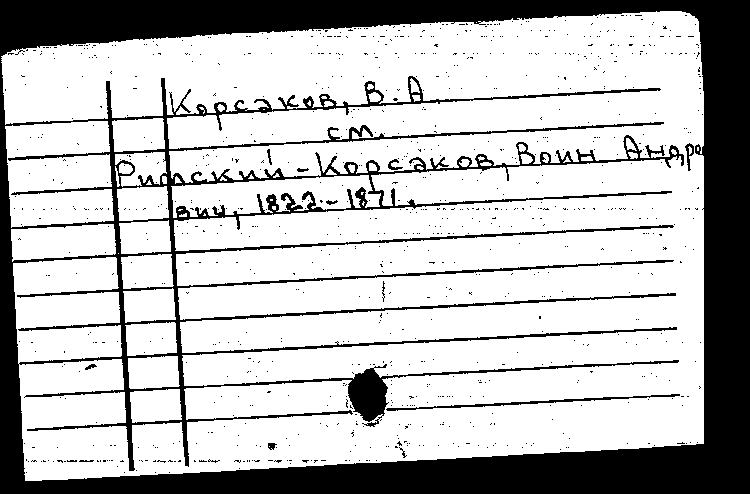 Корсаков, В.А.
см.
Римский-Корсаков, Воин Андрее
вич, 1822-1871.